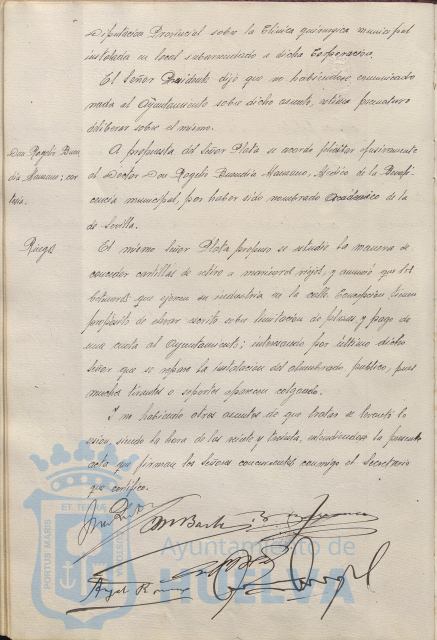 Diputación Provincial sobre la Clínica quirúrgica municipal
instalada en local subarrendado a dicha Corporación.
El Señor Presidente dijo que no habiéndose comunicado
nada al Ayuntamiento sobre dicho asunto, estima prematuro
deliberar sobre el mismo.
Don Rogelio Buen
día Manzano; cor
tesía.
A propuesta del Señor Plata se acordó felicitar efusivamente
al Doctor Don Rogelio Buendía Manzano, Médico de la Benefi
cencia municipal, por haber sido nombrado Académico de la
de Sevilla.
Ruegos
El mismo Señor Plata propuso se estudie la manera de
conceder cartillas de retiro a matronas viejas, y anunció que los
betuneros que ejercen su industria en la calle Concepción tienen
propósito de elevar escrito sobre limitación de plazas y pago de
una cuota al Ayuntamiento; interesando por último dicho
Señor que se repare la instalación del alumbrado público, pues
muchos tirantes o soportes aparecen colgando.
Y no habiendo otros asuntos de que tratar se levantó la
sesión, siendo la hora de las veinte y treinta, extendiéndose la presente
acta que firman los Señores concurrentes conmigo el Secretario
que certifico.
PORTUS MARIS
ET TERRÆ
Ayuntamiento de
HUELVA